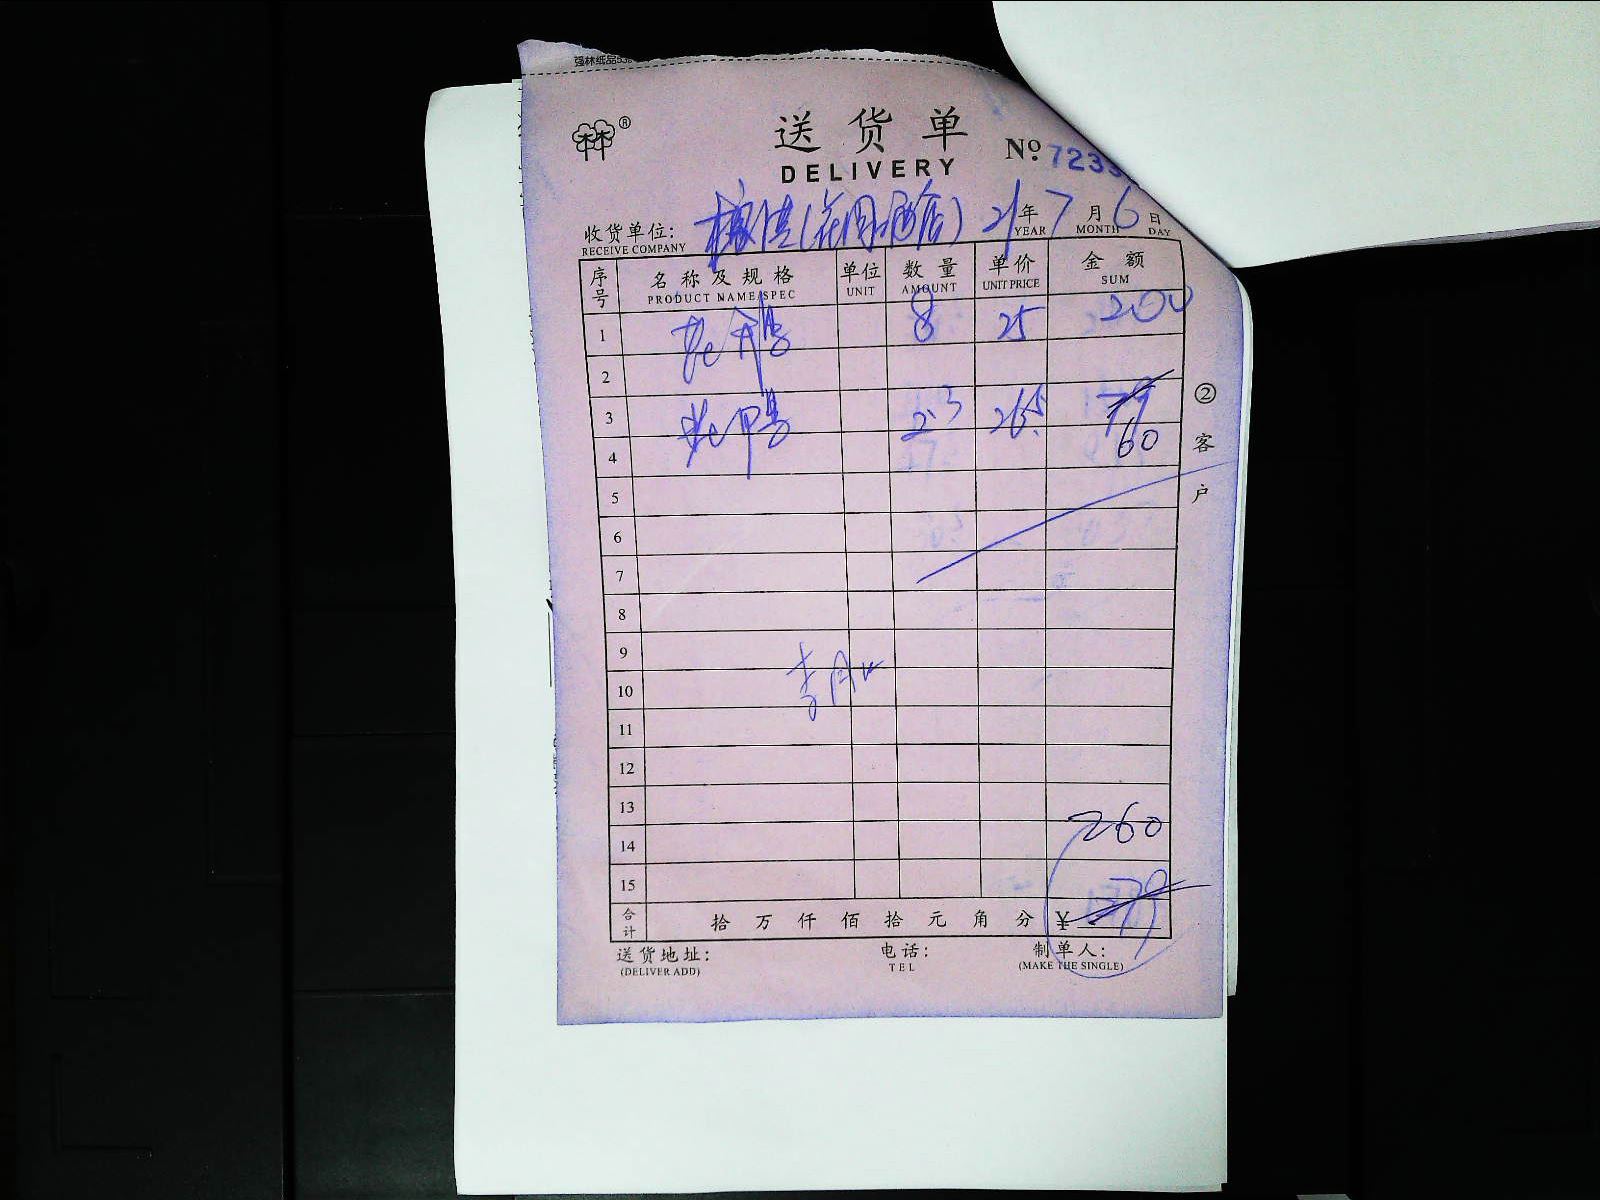 强林纸品
林®
送货单
DELIVERY
Nº 723
收货单位: (花间酒店) 21年7月6日
RECEIVE COMPANY YEAR MONTH DAY
序号 名称及规格 单位 数量 单价 金额
PRODUCT NAME/SPEC UNIT AMOUNT UNIT PRICE SUM
1 8 25 200
2
3 2.3 26.5 79
4 60
5
6
7
8
9
10 李
11
12
13
14 260
15
合计 拾万仟佰拾元角分 ¥
送货地址: 电话: 制单人:
(DELIVER ADD) TEL (MAKE THE SINGLE)
②客户